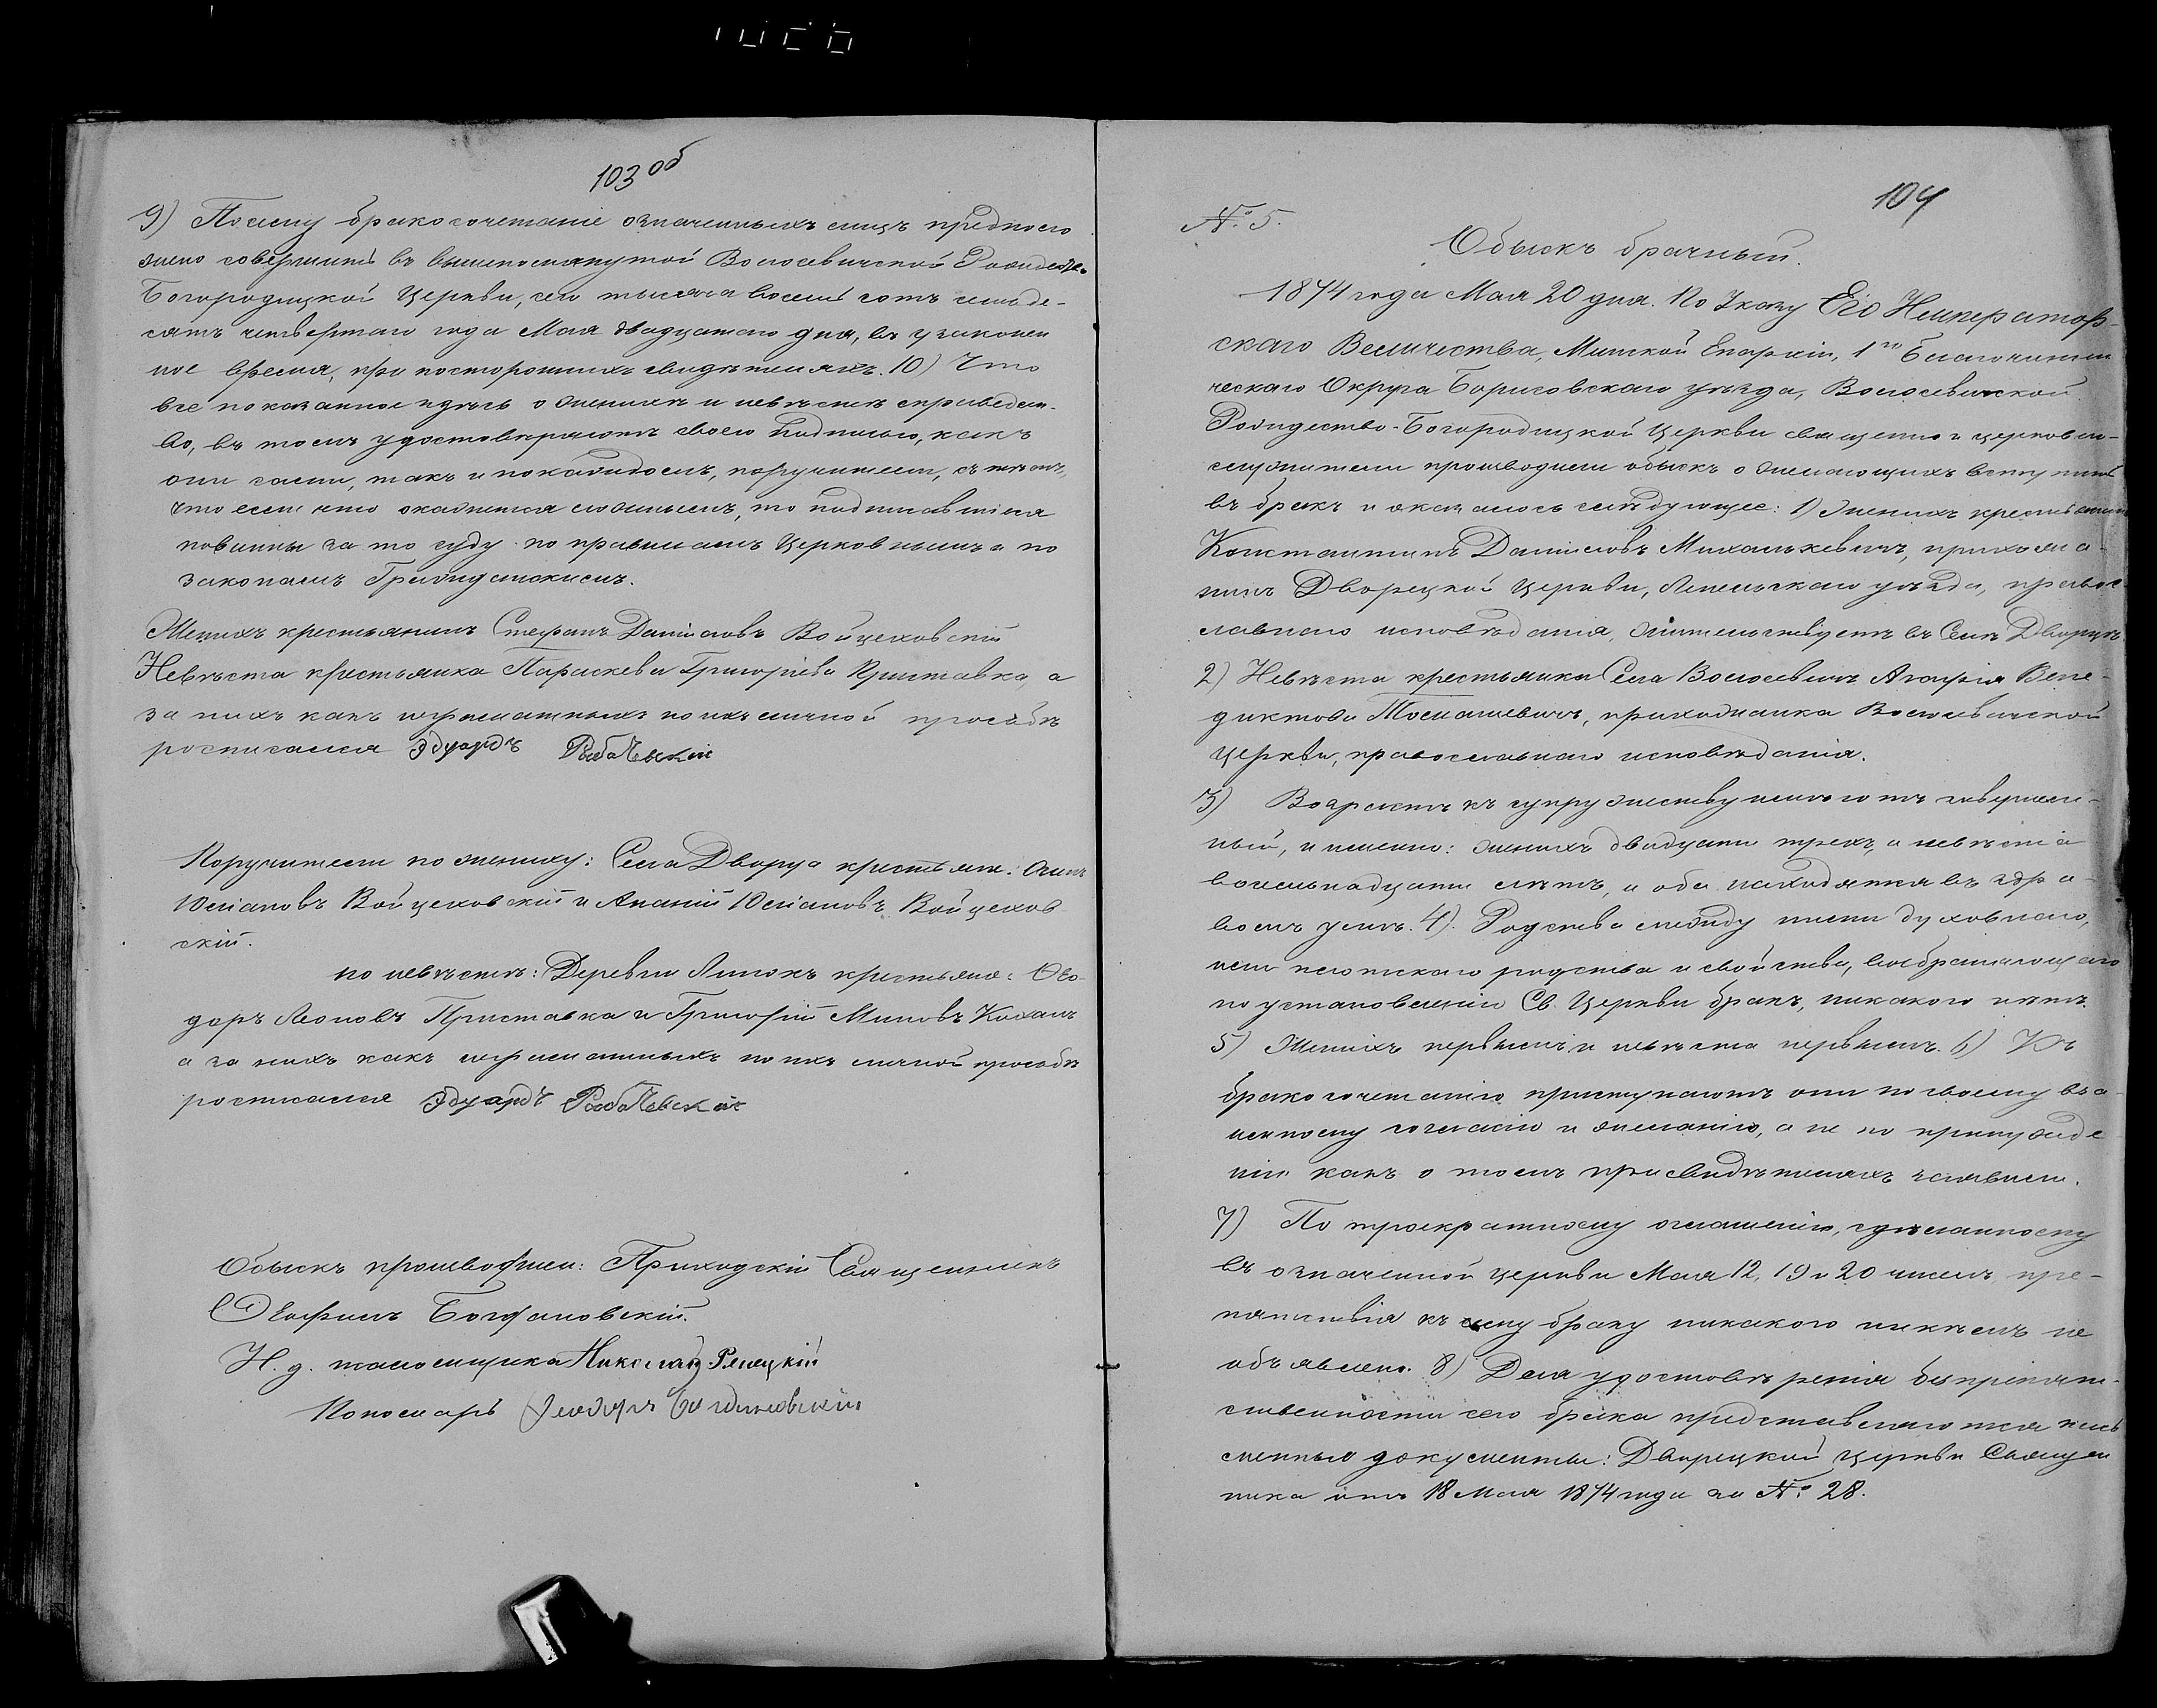 103 об
9) Посему бракосочетаніе означенныхъ лицъ предполо
жено совершить въ вышепомянутой Волосевичской Рождество
Богородицкой Церкви, сего тысяча восемь сотъ семьде-
сятъ четвертаго года Мая двадцатаго дня, въ узаконен
ное время, при постороннихъ свидѣтеляхъ. 10) Что
все показанное здѣсь о женихѣ и невѣстѣ справедли-
во, въ томъ удостовѣряютъ своею подписью, какъ
они сами, такъ и по каждомъ, поручители, съ тѣмъ,
что если что окажется ложнымъ, то подписавшіеся
повинны за то суду по правиламъ Церковнымъ и по
законамъ Гражданскимъ.
Женихъ крестьянинъ Стефанъ Даніиловъ Войцеховскій
Невѣста крестьянка Параскева Григоріева Приставка, а
за нихъ какъ неграматныхъ по ихъ личной просьбѣ
росписался Эдуардъ Рыбачевскій
Поручители по жениху: Села Дворца крестьяне: Осипъ
Юліановъ Войцеховскій и Ананій Юліановъ Войцехов
скій.
по невѣстѣ: Деревни Липокъ крестьяне: Ѳео-
доръ Леоновъ Приставка и Григорій Миновъ Коханъ
а за нихъ какъ неграматныхъ по ихъ личной просьбѣ
росписался Эдуардъ Рыбачевскій
Обыскъ производили: Приходскій Священникъ
Богдановскій.
И. д. псаломщика Николай Рялицкій
Пономарь Ѳеодоръ Богдановскій
104
№. 5.
Обыскъ брачный.
1874 года Мая 20 дня. По Указу Его Император-
скаго Величества, Минской Епархіи, 1го Благочинни
ческаго Округа Борисовскаго уѣзда, Волосевичской
Рождество-Богородицкой Церкви священно и церковно-
служители производили обыскъ о желающихъ вступить
въ бракъ и оказалось слѣдующее: 1) Женихъ крестьянинъ
Константинъ Даніиловъ Михалькевичъ, прихожа-
нинъ Дворецкой Церкви, Лепельскаго уѣзда, правос
лавнаго исповѣданія, жительствуетъ въ Селѣ Дворцѣ
2) Невѣста крестьянка Села Волосевичъ Агафія Вене-
диктова Томашевичъ, прихожанка Волосевичской
Церкви, православнаго исповѣданія.
3) Возрастъ къ супружеству имѣютъ совершен-
ный, и именно: женихъ двадцати трехъ, а невѣста
восемьнадцати лѣтъ, и оба находятся въ здра-
вомъ умѣ. 4). Родства между ними духовнаго,
или плотскаго родства и свойства, возбраняющаго
по установленію Св. Церкви бракъ, никакого нѣтъ.
5) Женихъ первымъ и невѣста первымъ. 6) Къ
бракосочетанію приступаютъ они по своему вза-
имному согласію и желанію, а не по принужде
нію какъ о томъ при свидѣтеляхъ заявили.
7) По троекратному оглашенію, сдѣланному
въ означенной церкви Мая 12, 19 и 20 чиселъ, пре-
пятствія къ сему браку никакого никѣмъ не
объявлено. 8) Для удостовѣренія безпрепят-
ственности сего брака представляются пись
менные документы: Дворецкой Церкви Священ
ника отъ 18 Мая 1874 года за №. 28.